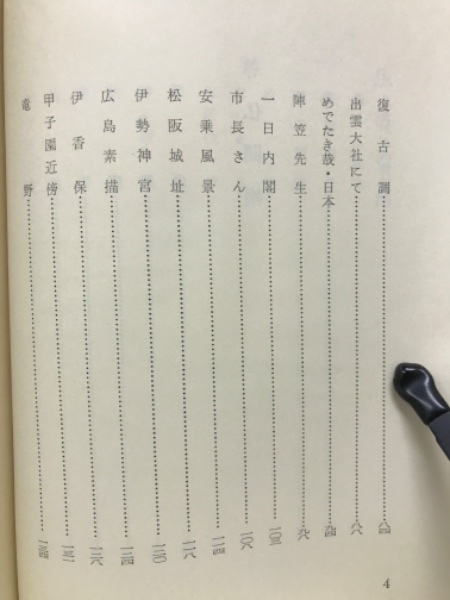 復古調……八四
出雲大社にて……八六
めでたき哉・日本……九四
陣笠先生……九八
一日内閣……一〇三
市長さん……一〇八
安乗風景……一一四
松阪城址……一一八
伊勢神宮……一二〇
広島素描……一二四
伊香保……一二八
甲子園近傍……一三一
竜野……一三四
4